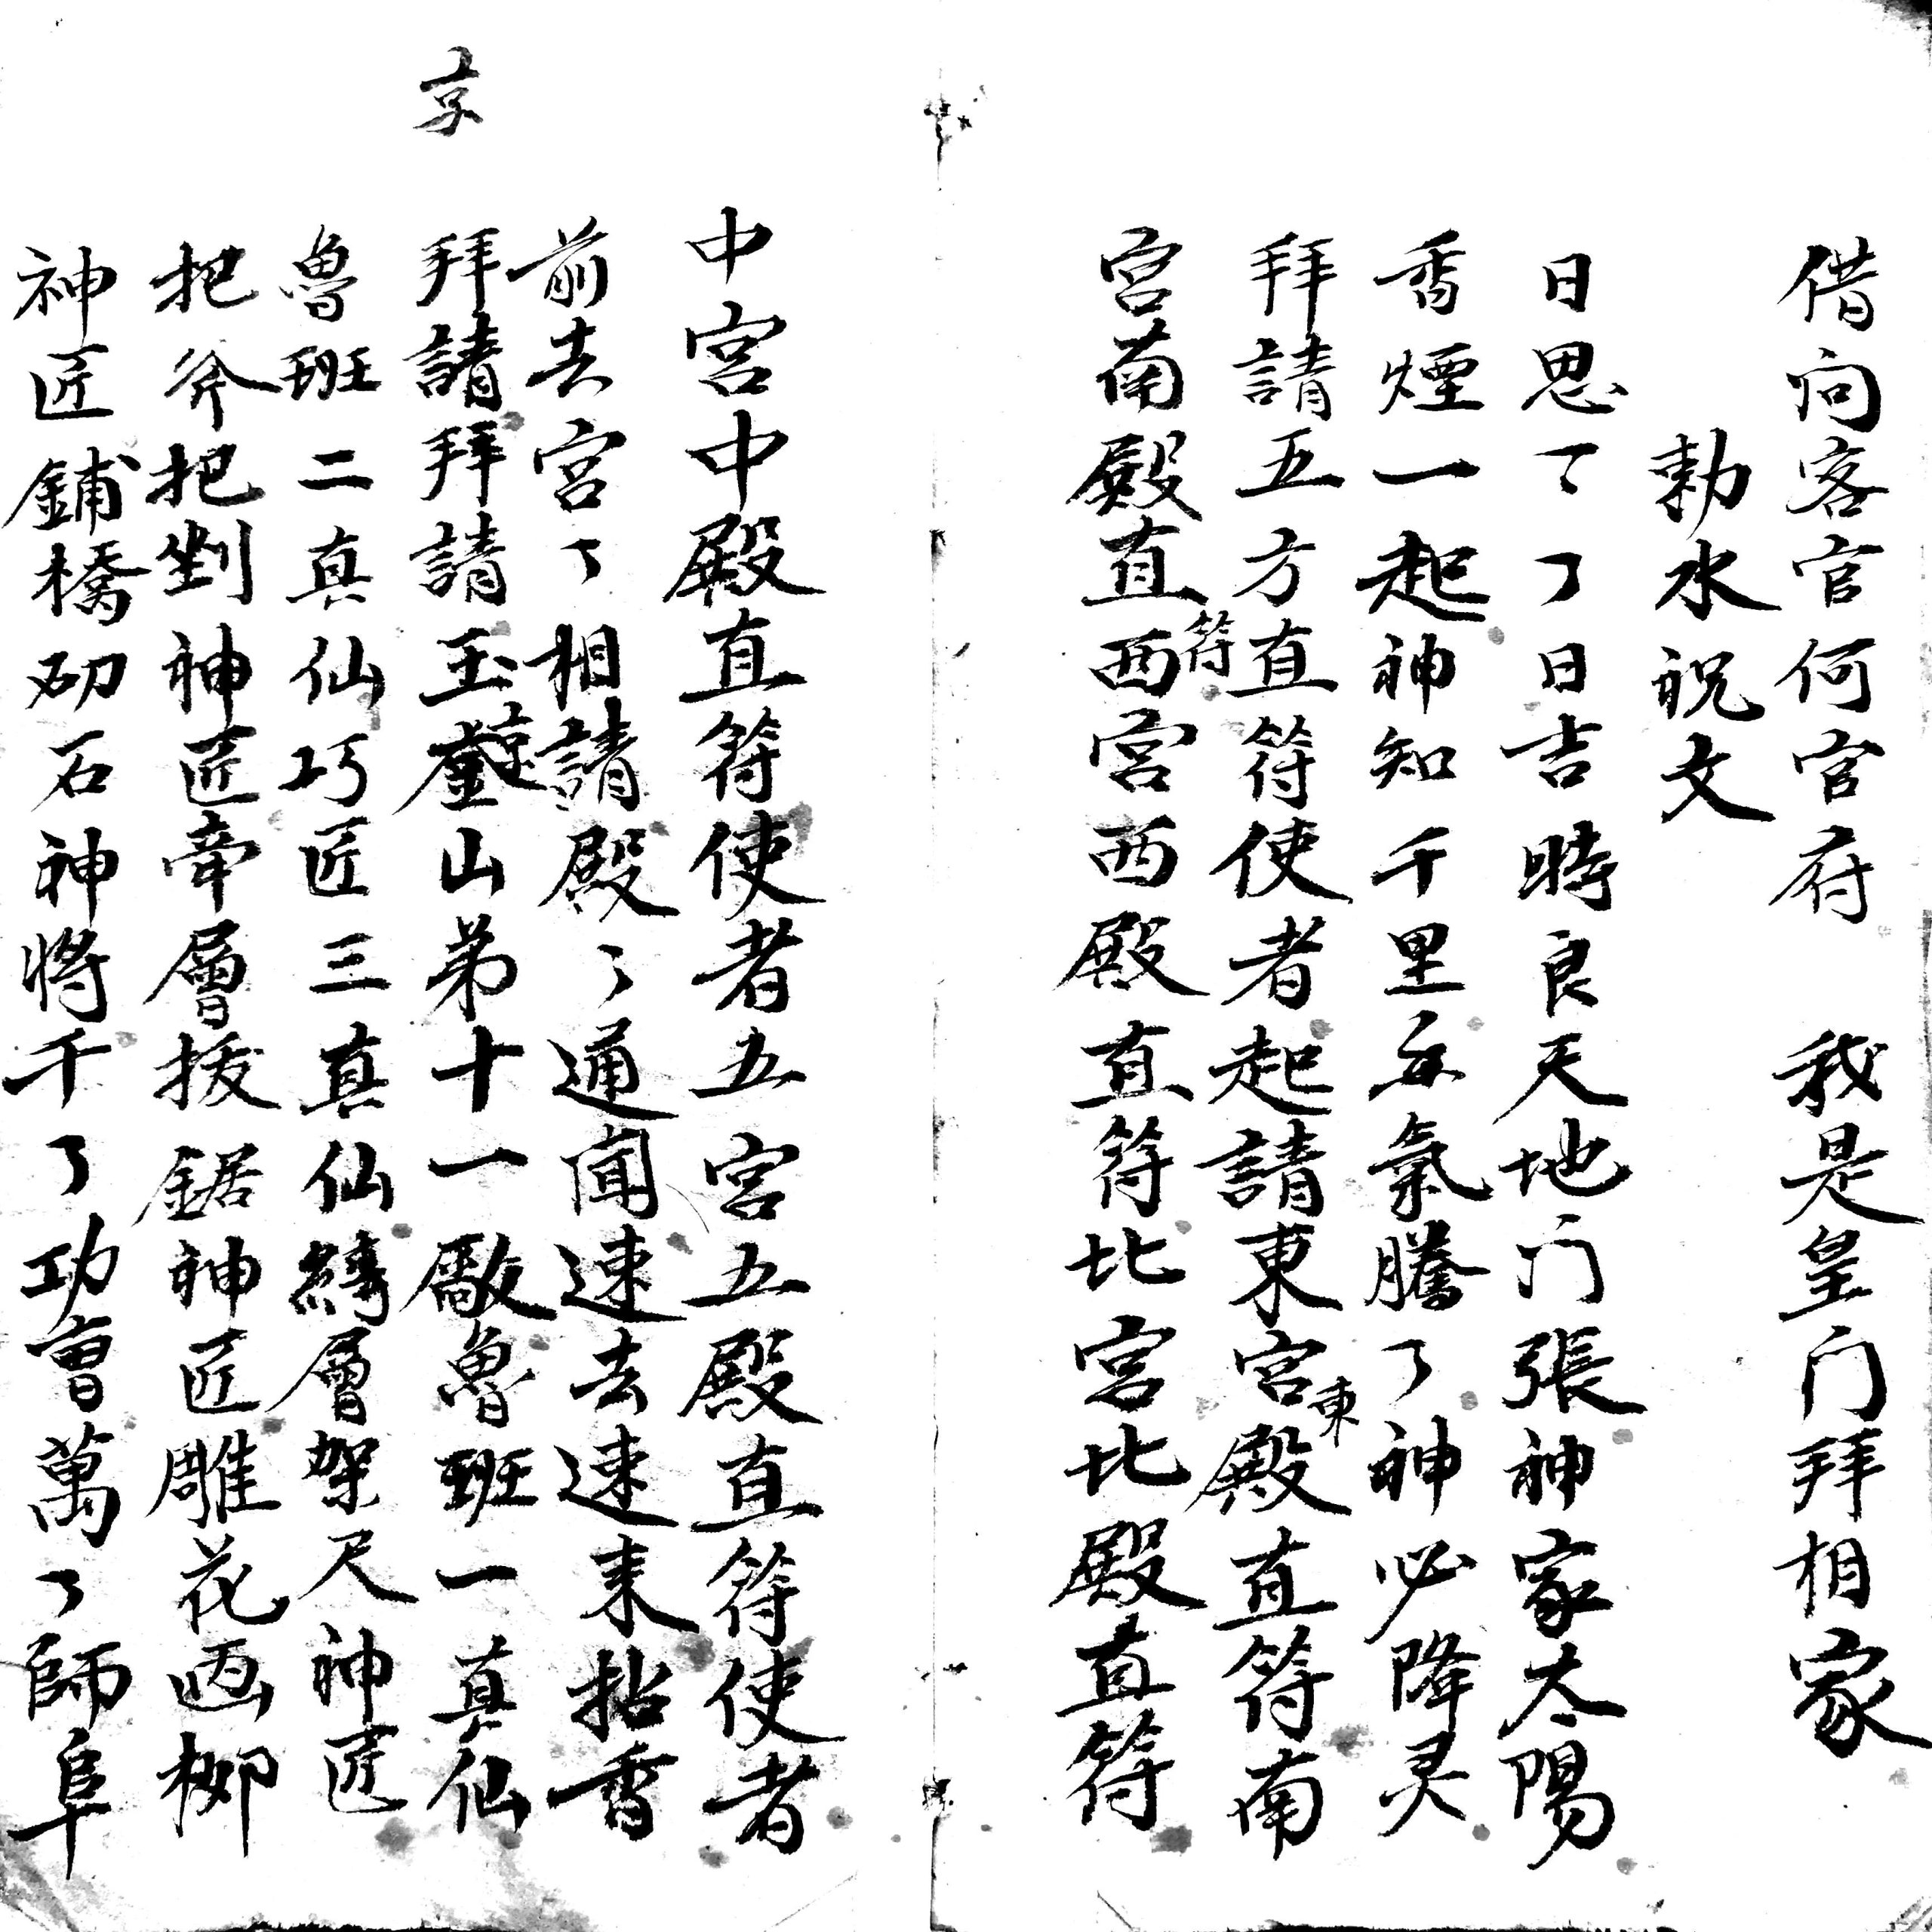 借问客官何官府 我是皇门拜相家
勅水祝文
日思了了了日吉時良天地门張神家太陽
香煙一起神知千里氣騰了神必降灵
拜請五方直符使者起請東宮東殿直符南
宮南殿直符西宮西殿直符北宮北殿直符
中宮中殿直符使者五宮五殿直符使者
前去宮了相請殿了通闻速去速来拈香
拜請拜請玉山弟十一殿魯班一真仙
享
魯班二真仙巧匠三真仙層架尺神匠
把斧把剉神匠牵層拔鋸神匠雕花画柳
神匠鋪橋砌石神将千了功曹萬了師阜